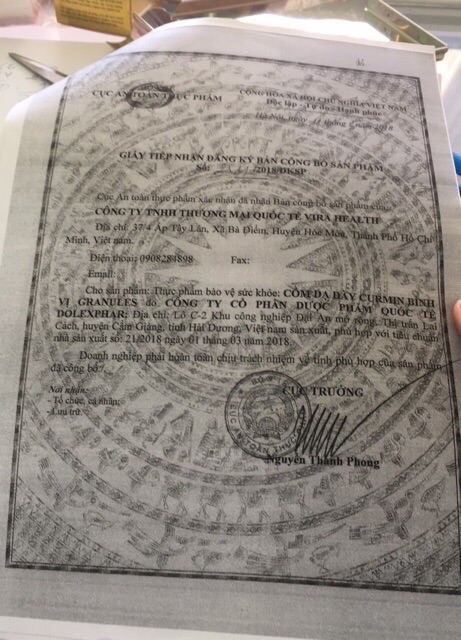 CỤC AN TOÀN THỰC PHẨM
CỘNG HÒA XÃ HỘI CHỦ NGHĨA VIỆT NAM
Độc lập - Tự do - Hạnh phúc
Hà Nội, ngày tháng năm 2018
GIẤY TIẾP NHẬN ĐĂNG KÝ BẢN CÔNG BỐ SẢN PHẨM
Số: /2018/ĐKSP
Cục An toàn thực phẩm xác nhận đã nhận Bản công bố sản phẩm của:
CÔNG TY TNHH THƯƠNG MẠI QUỐC TẾ VIRA HEALTH
Địa chỉ: 37/4 Ấp Tây Lân, Xã Bà Điểm, Huyện Hóc Môn, Thành Phố Hồ Chí
Minh, Việt nam.
Điện thoại: 0908284898 Fax:
Email:
Cho sản phẩm: Thực phẩm bảo vệ sức khỏe: CỐM DẠ DÀY CURMIN BÌNH
VỊ GRANULES do CÔNG TY CỔ PHẦN DƯỢC PHẨM QUỐC TẾ
DOLEXPHAR; Địa chỉ: Lô C-2 Khu công nghiệp Đại An mở rộng, Thị trấn Lai
Cách, huyện Cẩm Giàng, tỉnh Hải Dương, Việt nam sản xuất, phù hợp với tiêu chuẩn
nhà sản xuất số: 21/2018 ngày 01 tháng 03 năm 2018.
Doanh nghiệp phải hoàn toàn chịu trách nhiệm về tính phù hợp của sản phẩm
đã công bố./.
Nơi nhận:
- Tổ chức, cá nhân;
- Lưu trữ.
CỤC TRƯỞNG
Nguyễn Thanh Phong